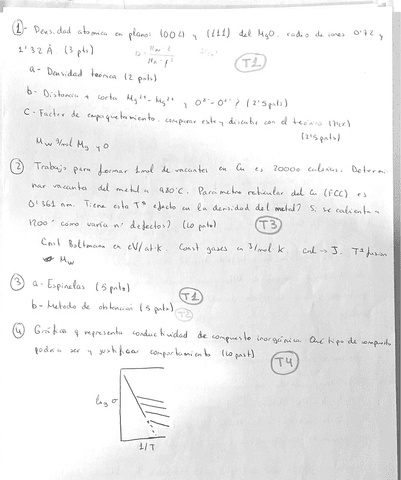 ① - Densidad atómica en planos (002) y (111) del MgO. radio de iones 0'72 y
1'32 Å (3 pts)
T1
a - Densidad teórica (2 pts)
b - Distancia + corta Mg²⁺-Mg²⁺ y O²⁻-O²⁻? (2'5 pts)
c - Factor de empaquetamiento. comparar este y discutir con el teórico (74%)
(2'5 pts)
Mw g/mol Mg y O
② Trabajo para formar 1 mol de vacantes en Cu es 20000 calorías. Determi
nar vacantes del metal a 980°C. Parámetro reticular del Cu (FCC) es
0'361 nm. Tiene esta Tª efecto en la densidad del metal? Si se calienta a
1200° como varía nº defectos? (10 pts)
T3
Cnst Boltzmann en eV/at·k. Const gases en J/mol·k. cal → J. Tª fusion
Mw
③ a - Espinelas (5 pts)
T1
b - Metodo de obtención (5 pts)
T2
④ Gráfica q representa conductividad de compuesto inorgánico. Qué tipo de compuesto
podría ser y justificar comportamiento (10 pts)
T4
log σ
1/T